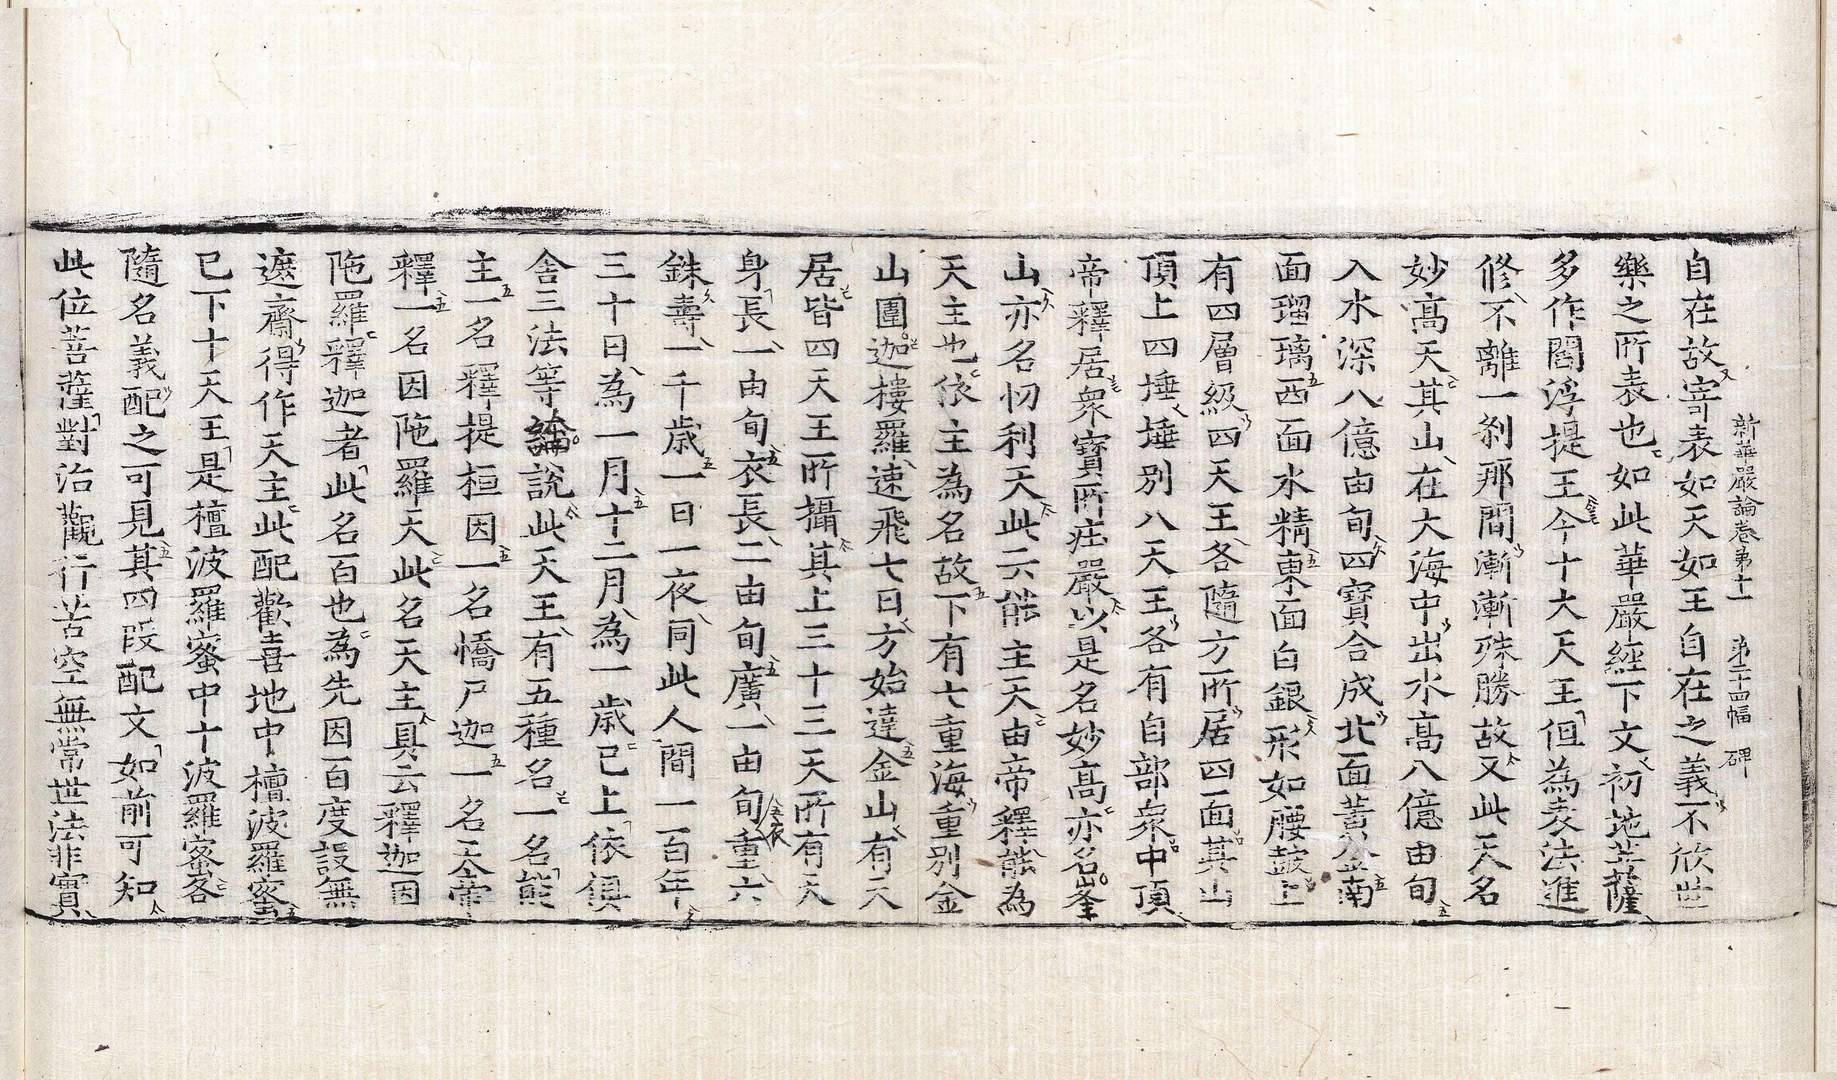 自在故寄表如天如王自在之義不欣世
新華嚴論卷第十一 第二十四幅 碑
樂之所表也如此華嚴經下文初地菩薩
多作閻浮提王今十大天王但為表法進
修不離一刹那間漸漸殊勝故又此天名
妙高天其山在大海中出水高八億由旬
入水深八億由旬四寶合成北面黃金南
面瑠璃西面水精東面白銀形如腰鼓上
有四層級四天王各隨方所居四面其山
頂上四埵埵別八天王各有自部衆中頂
帝釋居衆寶所庄嚴以是名妙高亦名峯
山亦名忉利天此云能主天由帝釋能為
天主也依主為名故下有七重海重別金
山圍迦樓羅速飛七日方始達金山有天
居皆四天王所攝其上三十三天所有天
身長一由旬衣長二由旬廣一由旬衣重六
銖壽一千歲一日一夜同此人間一百年
三十日為一月十二月為一歲已上依俱
舍三法等論說此天王有五種名一名能
主一名釋提桓因一名憍尸迦一名天帝
釋一名因陁羅天此名天主具云釋迦因
陁羅釋迦者此名百也為先因百度設無
遮齋得作天主此配歡喜地中檀波羅蜜
已下十天王是檀波羅蜜中十波羅蜜各
隨名義配之可見其四段配文如前可知
此位菩薩對治觀行苦空無常世法非實